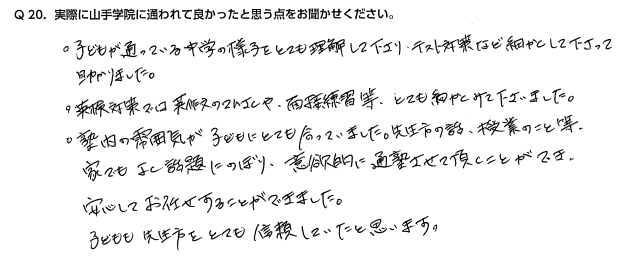 Q 20. 実際に山手学院に通われて良かったと思う点をお聞かせください。
。子どもが通っている中学の様子をとても理解して下さり、テスト対策など細かくして下さって
助かりました。
。英検対策では英作文のてんさくや、面接練習等、とても細かくみて下さいました。
。塾内の雰囲気が子どもにとても合っていました。先生方の話、授業のこと等、
家でもよく話題にのぼり、意欲的に通塾させて頂くことができ、
安心してお任せすることができました。
子どもも先生方をとても信頼していたと思います。